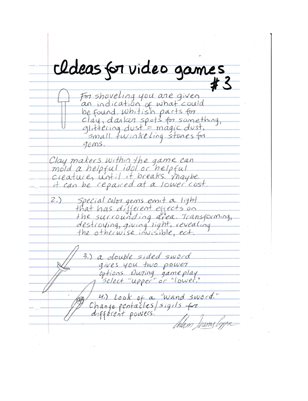 Ideas for video games
#3
For shoveling you are given
an indication of what could
be found. Whitish parts for
clay, darker spots for something,
glittering dust = magic dust,
small twinkeling stones for
gems.
Clay makers within the game can
mold a helpful idol or helpful
creature, until it breaks. Maybe
it can be repaired at a lower cost.
2.) Special color gems emit a light
that has different effects on
the surrounding area. Transforming,
destroying, giving light, revealing
the otherwise invisible, ect.
3.) a double sided sword
gives you two power
options. During gameplay
select "upper" or "lower."
4.) Look of a "wand sword."
Change pentacles/sigils for
different powers.
Adam